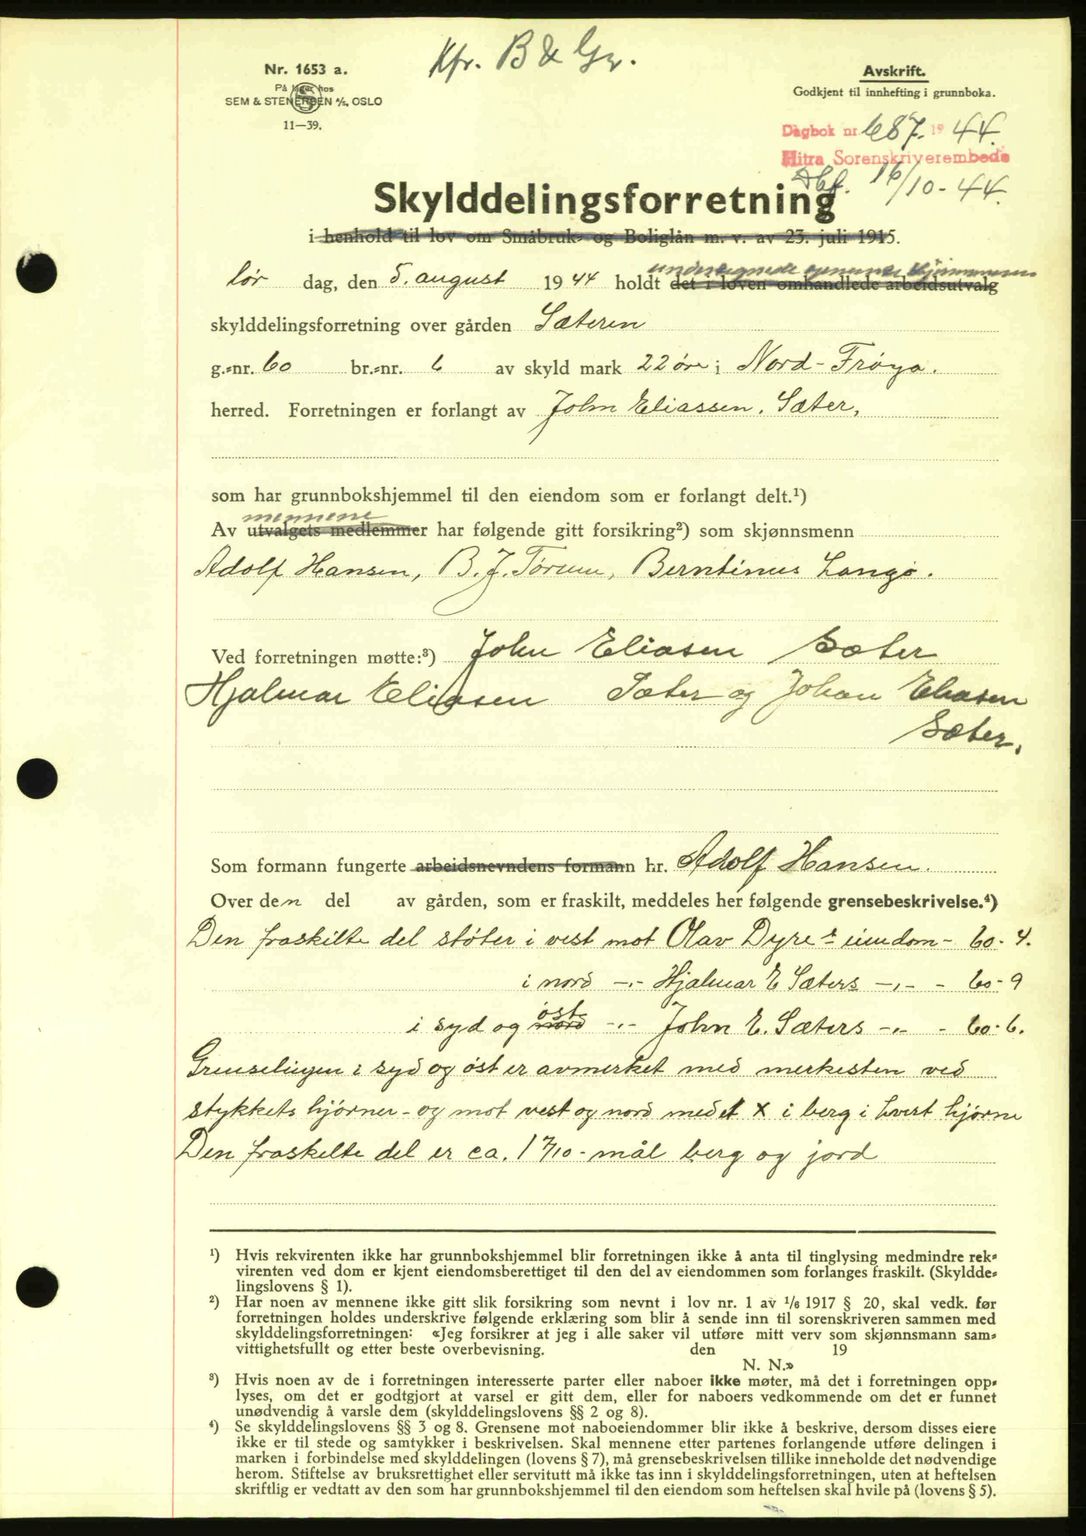 Kfr. B & Gr.
Nr. 1653 a.
På lager hos
SEM & STENERSEN A/S, OSLO
11—39.
Avskrift.
Godkjent til innhefting i grunnboka.
Dagbok nr. 687. 19 44.
Hitra Sorenskriverembede
16/10 - 44.
Skylddelingsforretning
i henhold til lov om Småbruk- og Boliglån m. v. av 23. juli 1915.
undertegnede
lør dag, den 5. august 1944 holdt det i loven omhandlede arbeidsutvalg
skylddelingsforretning over gården Sæteren
g.-nr. 60 br.-nr. 6 av skyld mark 22 öre i Nord-Frøya.
herred. Forretningen er forlangt av John Eliassen. Sæter.
som har grunnbokshjemmel til den eiendom som er forlangt delt.¹)
mennene
Av utvalgets medlemmer har følgende gitt forsikring²) som skjønnsmenn
Adolf Hansen, B. J. Tørum, Berntinus Langø.
Ved forretningen møtte:³) John Eliasen Sæter
Hjalmar Eliasen Sæter og Johan Eliasen
Sæter.
Som formann fungerte arbeidsnevndens formann hr. Adolf Hansen.
Over den del av gården, som er fraskilt, meddeles her følgende grensebeskrivelse.⁴)
Den fraskilte del støter i vest mot Olav Dyres eiendom - 60 - 4.
i nord -"- Hjalmar E Sæters -"- - 60 - 9
öst
i syd og nord -"- John E. Sæters -"- - 60 - 6.
Grenselinjen i syd og öst er avmerket med merkesten ved
stykkets hjörner - og mot vest og nord med et x i berg i hvert hjörne
Den fraskilte del er ca. 1 7/10 - mål berg og jord
¹) Hvis rekvirenten ikke har grunnbokshjemmel blir forretningen ikke å anta til tinglysing medmindre rek-
virenten ved dom er kjent eiendomsberettiget til den del av eiendommen som forlanges fraskilt. (Skyldde-
lingslovens § 1).
²) Har noen av mennene ikke gitt slik forsikring som nevnt i lov nr. 1 av 1/6 1917 § 20, skal vedk. før
forretningen holdes underskrive følgende erklæring som blir å sende inn til sorenskriveren sammen med
skylddelingsforretningen: «Jeg forsikrer at jeg i alle saker vil utføre mitt verv som skjønnsmann sam-
vittighetsfullt og etter beste overbevisning. den 19
N. N.»
³) Hvis noen av de i forretningen interesserte parter eller naboer ikke møter, må det i forretningen opp-
lyses, om det er godtgjort at varsel er gitt dem, eller for naboers vedkommende om det er funnet
unødvendig å varsle dem (skylddelingslovens §§ 2 og 8).
⁴) Se skylddelingslovens §§ 3 og 8. Grensene mot naboeiendommer blir ikke å beskrive, dersom disses eiere
ikke er til stede og samtykker i beskrivelsen. Skal mennene etter partenes forlangende utføre delingen i
marken i forbindelse med skylddelingen (lovens § 7), må grensebeskrivelsen tillike inneholde det nødvendige
herom. Stiftelse av bruksrettighet eller servitutt må ikke tas inn i skylddelingsforretningen, uten at heftelsen
skriftlig er vedtatt av den som har grunnbokshjemmel til den eiendom som heftelsen skal hvile på (lovens § 5).